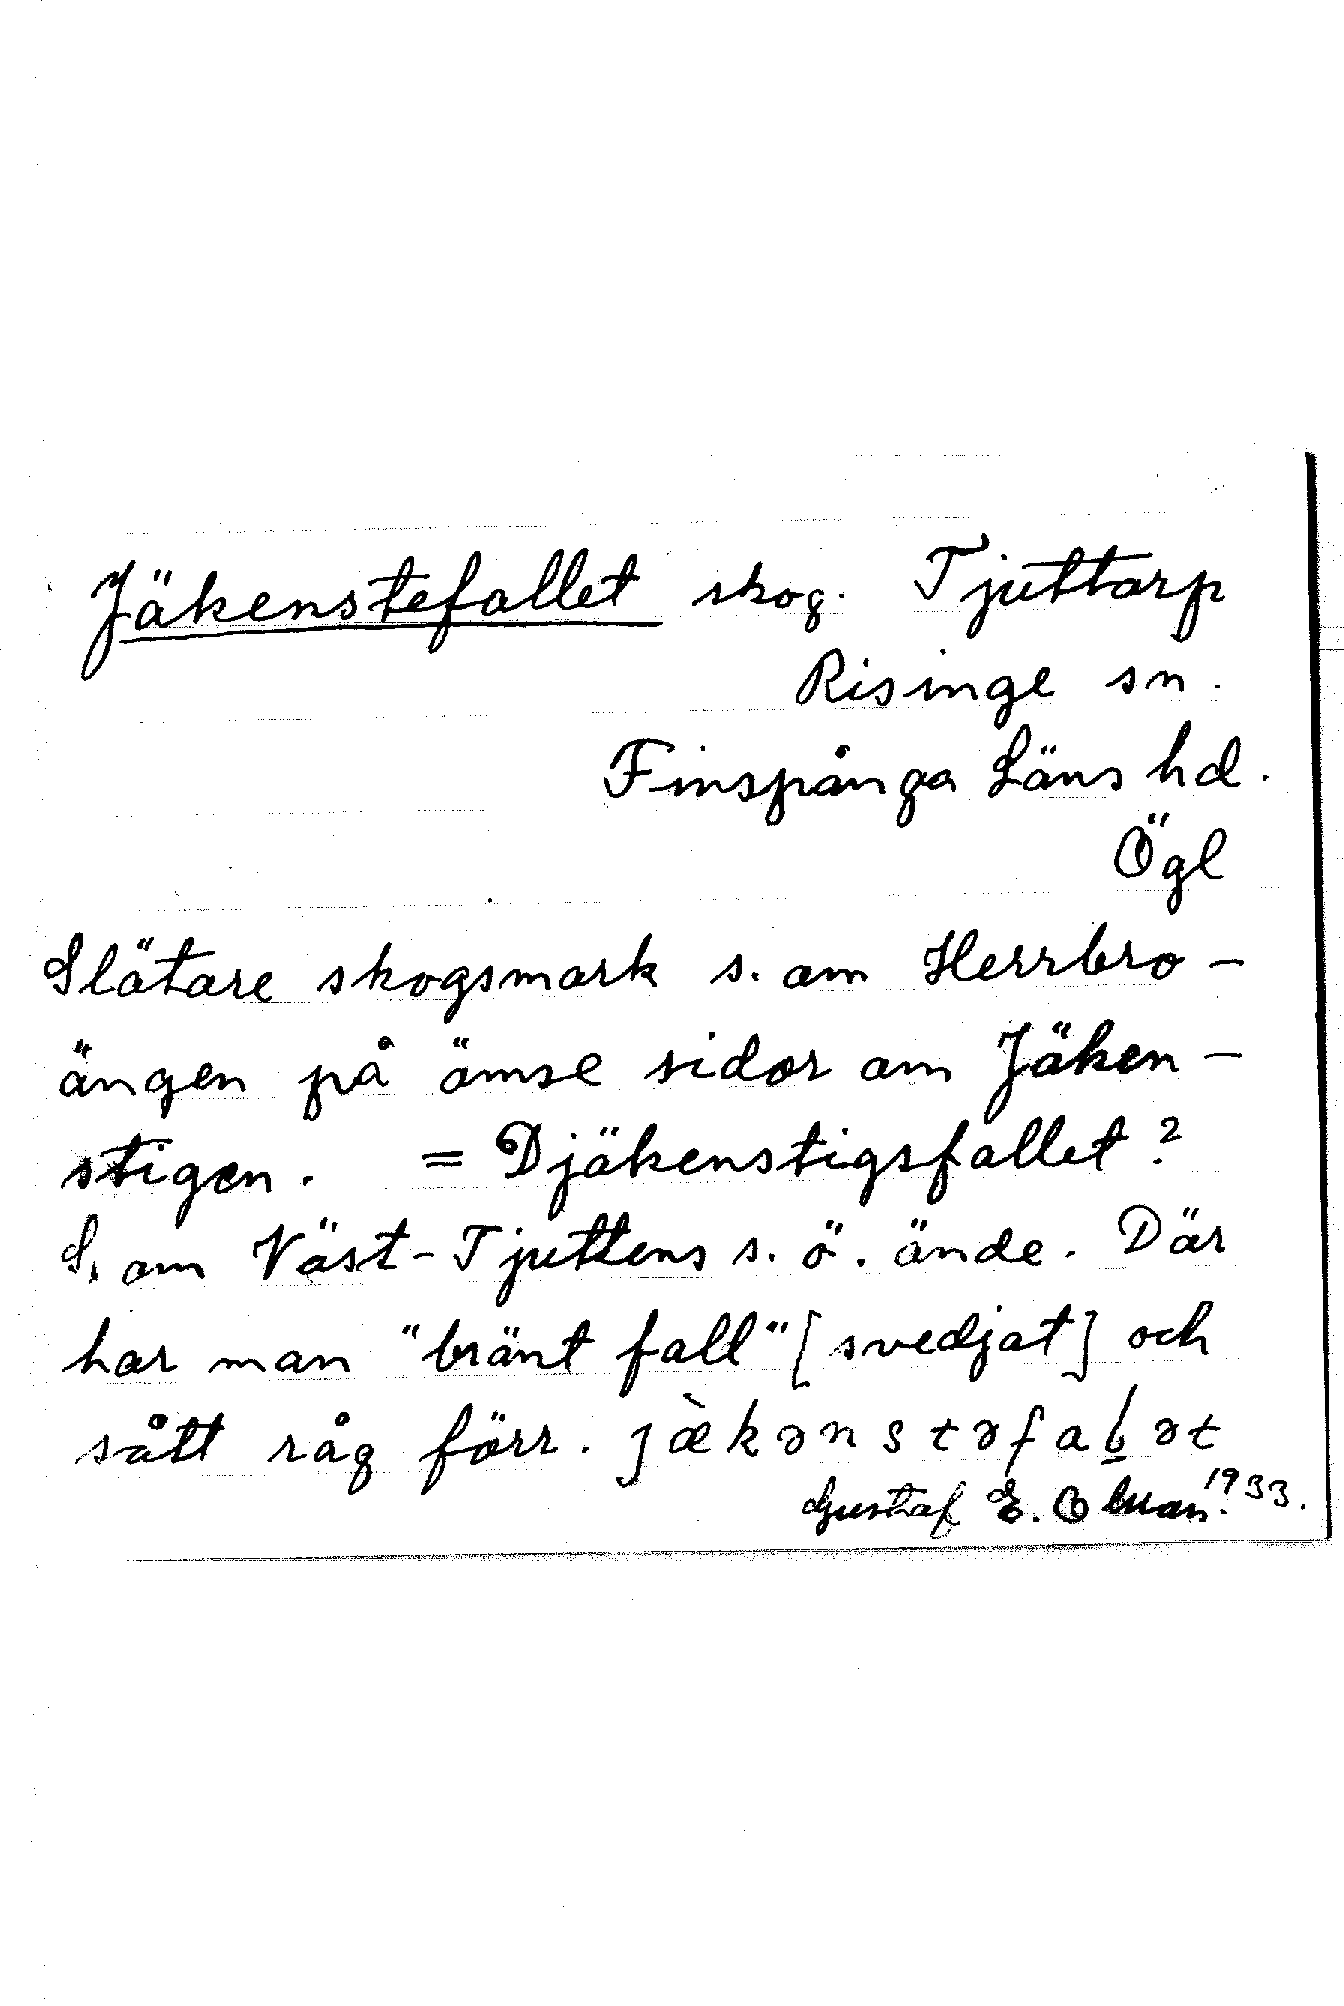 Jäkenstefallet skog. Tjuttarp
Risinge sn.
Finspånga Läns hd.
Ögl
Slätare skogsmark s. om Herrbro-
ängen på ömse sidor om Jäken-
stigen. = Djäkenstigsfallet?
S. om Väst-Tjuttens s.ö. ände. Där
har man "bränt fall" [svedjat] och
sått råg förr. jæ̀kənstəfaḷət
Gustaf E. 1933.